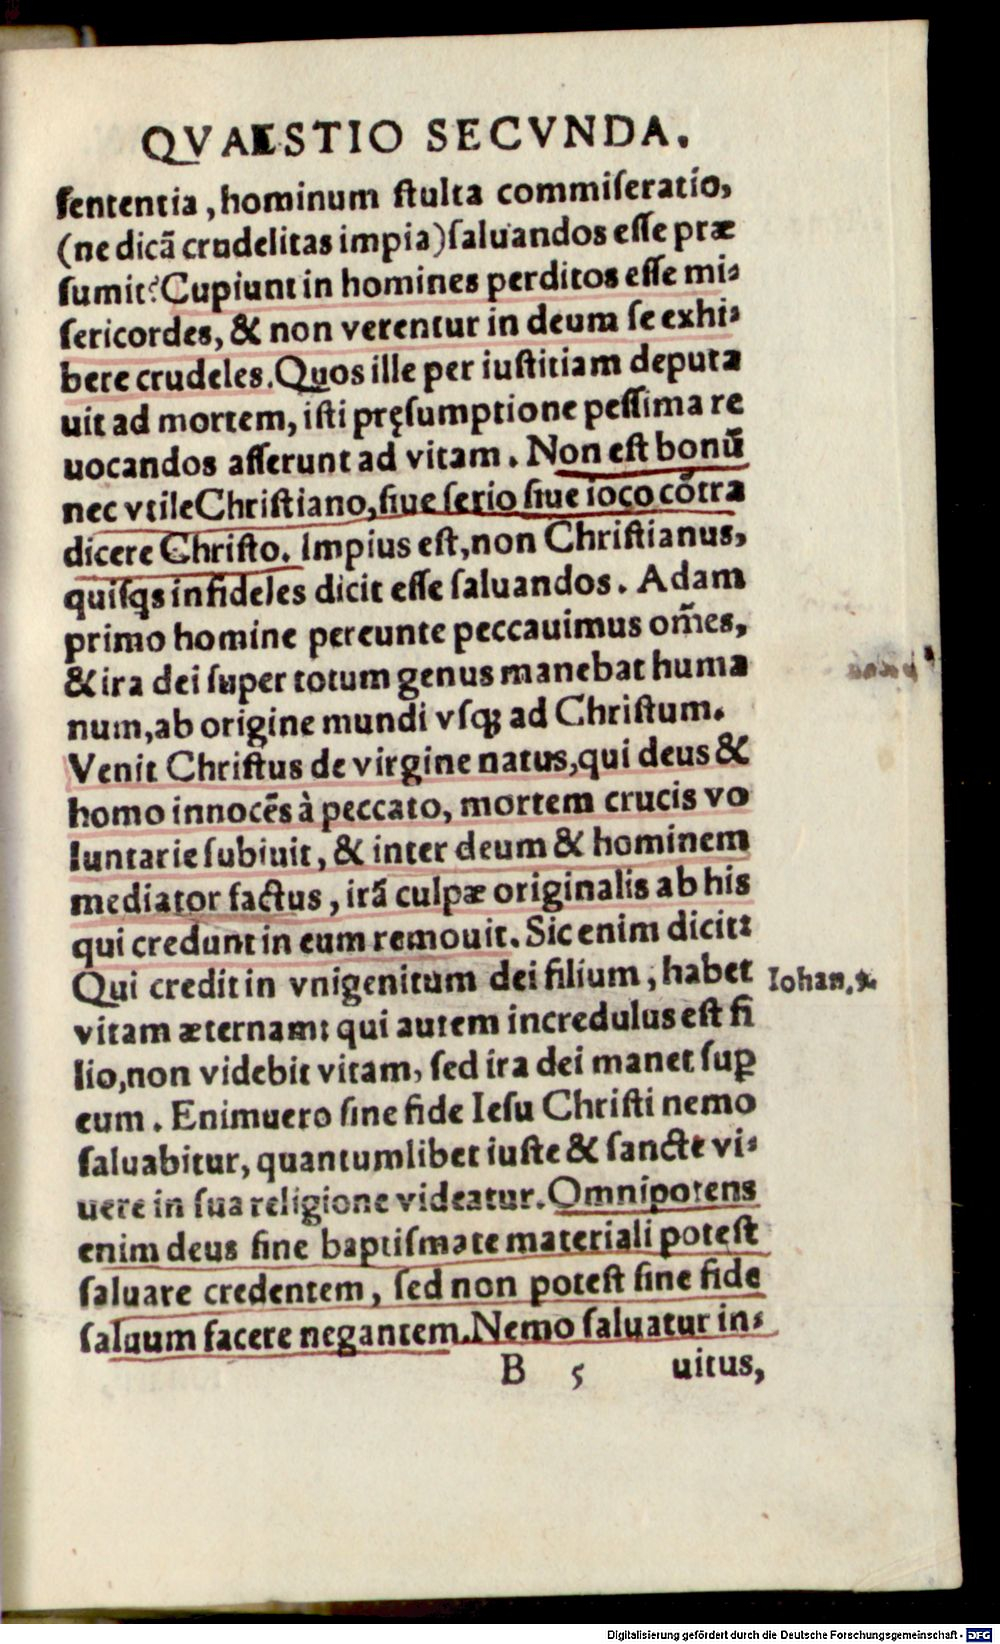 QVAESTIO SECVNDA.
ſententia, hominum ſtulta commiſeratio,
(ne dicã crudelitas impia) ſaluandos eſſe præ
ſumit? Cupiunt in homines perditos eſſe mi⸗
ſericordes, & non verentur in deum ſe exhi⸗
bere crudeles. Quos ille per iuſtitiam deputa
uit ad mortem, iſti pręſumptione peſſima re
uocandos aſſerunt ad vitam. Non eſt bonũ
nec vtile Chriſtiano, ſiue ſerio ſiue ioco cõtra
dicere Chriſto. Impius eſt, non Chriſtianus,
quiſqs infideles dicit eſſe ſaluandos. Adam
primo homine pereunte peccauimus om̃es,
& ira dei ſuper totum genus manebat huma
num, ab origine mundi vſqꝫ ad Chriſtum.
Venit Chriſtus de virgine natus, qui deus &
homo innocẽs à peccato, mortem crucis vo
luntarie ſubiuit, & inter deum & hominem
mediator factus, irã culpæ originalis ab his
qui credunt in eum remouit. Sic enim dicit:
Qui credit in vnigenitum dei filium, habet
Iohan.
vitam æternam: qui autem incredulus eſt fi
lio, non videbit vitam, ſed ira dei manet ſuꝑ
eum. Enimuero ſine fide Ieſu Chriſti nemo
ſaluabitur, quantumlibet iuſte & ſancte vi⸗
uere in ſua religione videatur. Omnipotens
enim deus ſine baptiſmate materiali poteſt
ſaluare credentem, ſed non poteſt ſine fide
ſaluum facere negantem. Nemo ſaluatur in⸗
B 5 uitus,
Digitalisierung gefördert durch die Deutsche Forschungsgemeinschaft - DFG